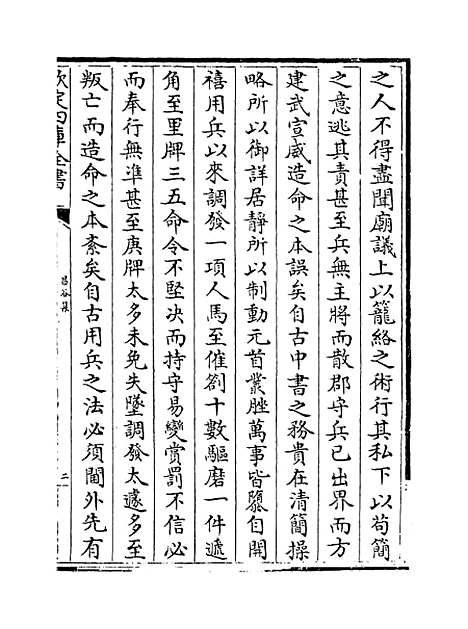 之人不得盡聞廟議上以籠絡之術行其私下以苟簡
之意逃其責甚至兵無主將而散郡守兵已出界而方
建武宣威造命之本誤矣自古中書之務貴在清簡操
略所以御詳居靜所以制動元首叢脞萬事皆隳自開
禧用兵以來調發一項人馬至催劄十數驅磨一件遞
角至里牌三五命令不堅决而持守易變賞罰不信必
而奉行無準甚至庚牌太多未免失墜調發太遽多至
叛亡而造命之本紊矣自古用兵之法必須閫外先有
欽定四庫全書
昌谷集
三